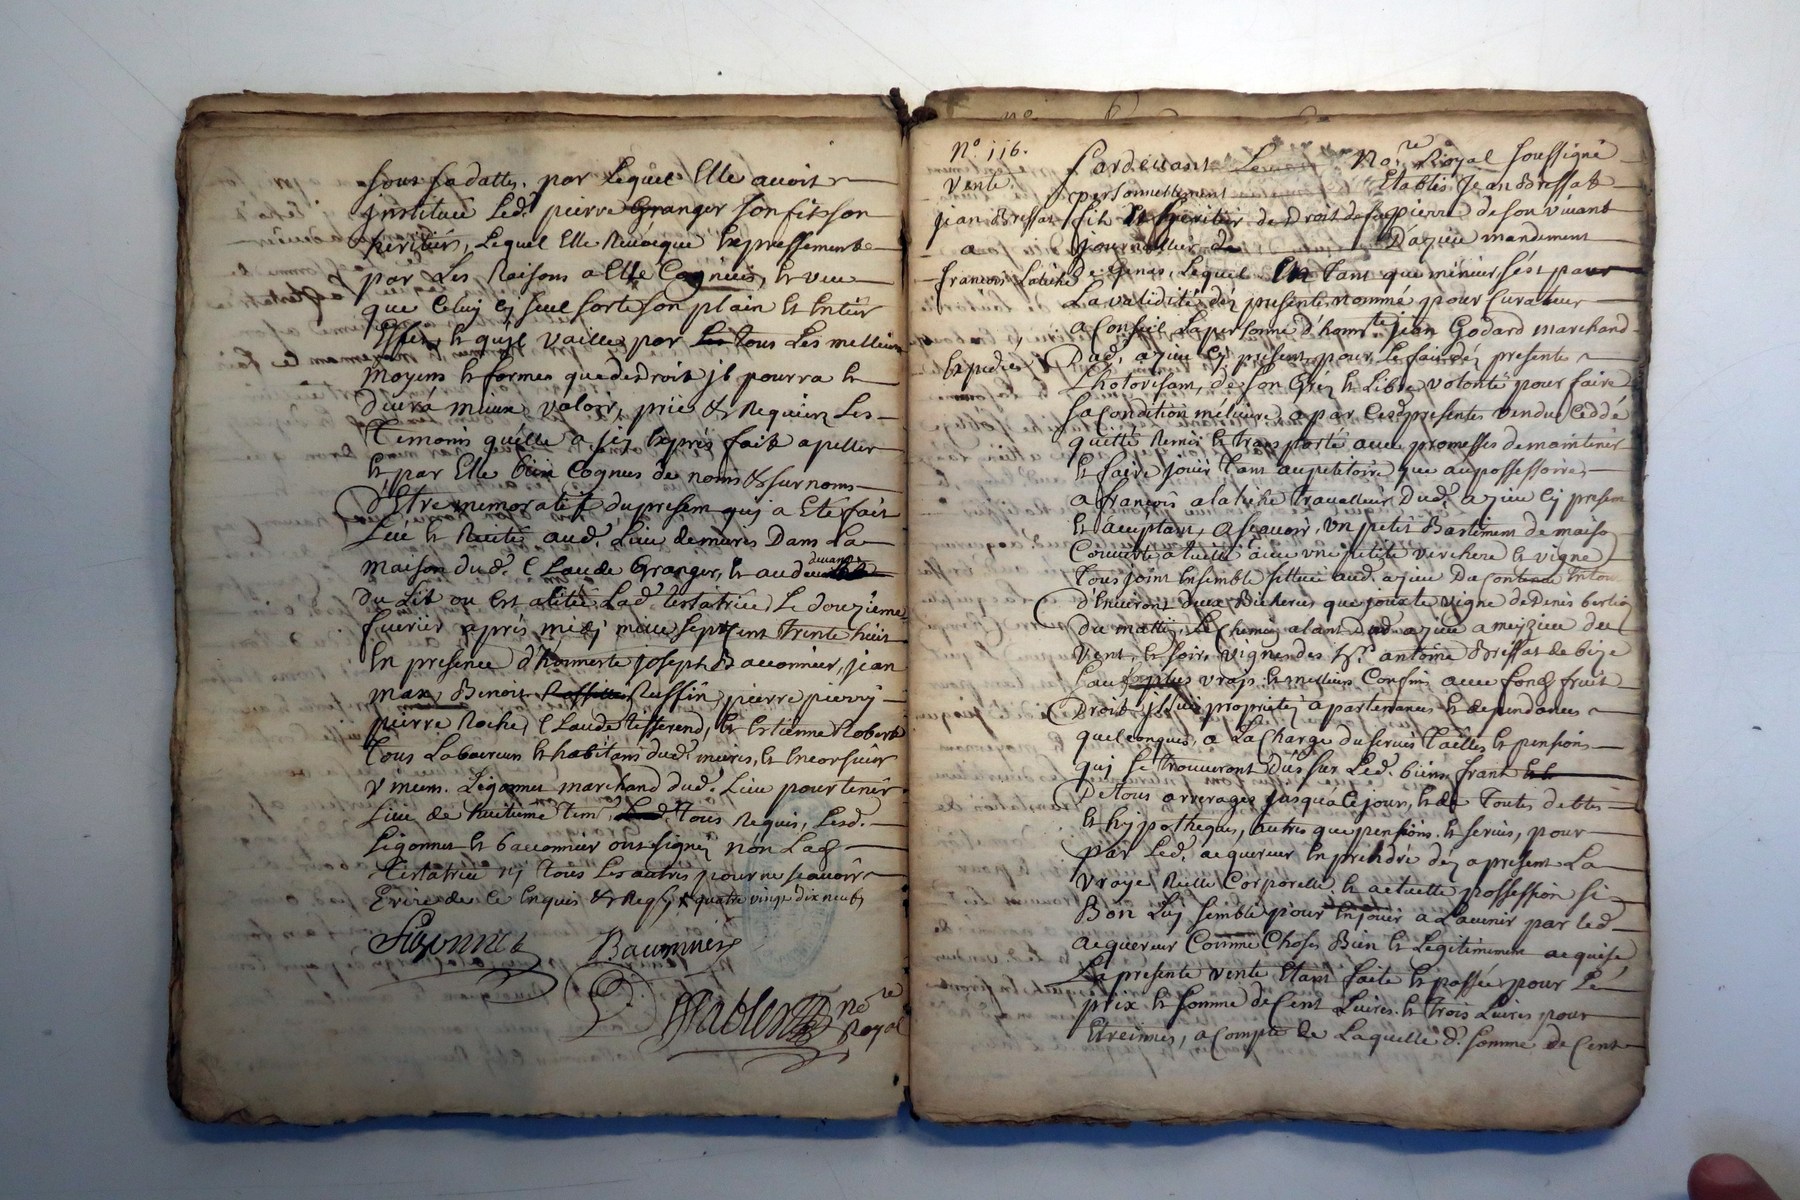 sous sa datte, par Lequel Elle avoit
institué Led. pierre Granger son fils son
heritier, Lequel Elle Revocque Expressement
par Les Raisons a Elle Cognües, et veu
que Celuy cy seul sorte son plain et Entier
Effet, et qu'il vaille par tous Les meilleurs
moyens et formes que de droit il pourra et
devra mieux valoir, prie et Requiert Les
Temoins qu'elle a icy Exprés fait apeller
et par Elle bien Cognus de noms et surnoms
D'Estre memoratifs du present qui a Eté fait
Leu et Recité aud. Lieu de mures Dans La
maison dud. Claude Granger, et au devant
du Lit ou est alitée Lad. testatrice, Le douzieme
fevrier aprés midy mille sept cent trente huit
En presence d'honneste joseph Bauonnier, jean
max, Benoit Ruffin, pierre pierry
pierre Roche, Claude tisserend, et Estienne Robert
tous Laboureurs et habitans dud. mures, et Encor sieur
vincent Ligonnet marchand dud. Lieu pour tenir
Lieu de huitieme temoin, tous Requis, Lesd.
Ligonnet et Bauonnier ont signé non Lad.
Testatrice ny tous Les autres pour ne scavoir
Ecrire de ce Enquis et Req. quatre vingt dix neuf
Ligonnet Bauonnier
no.re Royal
N.o 116.
vente.
jean Bressat
a
francois Latiche
Expediés
Pardevant Le No.re Royal soussigné
personnellement Etablis Jean Bressat
fils et heritier de Droit de feu pierre de son vivant
journallier D'azieu mandement
de Genas, Lequel En tant que mineur s'est pour
La validité des presentes nommé pour Curateur
a Conseil La personne d'honn.te jean Godard marchand
Dud. azieu cy present, pour Le fait des presentes
L'hotorisant, de son Gré et Libre volonté pour faire
sa Condition meilieure, a par Cesd. presentes vendu Ceddé
quitté Remis et transporté avec promesses de maintenir
et faire jouir tant au petitoire que au possessoire,
a francois alatiche travailleur Dud. azieu cy present
et acceptant, a scavoir, un petit Bastiment de maison
Couverte a tuille avec une petite verchere et vigne
tous joint Ensemble sittué aud. azieu Da Contenue En tout
d'Environt deux Bicherées que jouxte vigne de Denis berlio
Du mattin, Le Chemin alant Dud. azieu a meyzieu de
vent, et soir, vignes des h.rs antoine Bressat de bize
sauf plus vrays et meilleurs Confins avec fonds fruit
Droit jssuës proprietés apartenances et dependances
quelconques, a La Charge du servis tailles et pensions
qui se trouveront Dus sur Led. biens franc
De tous arrerages jusqu'a Ce jour, et de toutes debtes
et hypotheques, autres que pensions et servis, pour
par Led. acquereur En prendre dés a present La
vraye Reelle Corporelle et actuelle possession si
Bon Luy semble pour En jouir a L'avenir par led.
acquereur Comme Choses Bien et Legitimement acquise
La presente vente Etant faite et passée pour Le
prix et somme de Cent Livres et trois Livres pour
Etreinnes, a Compte de Laquelle d. somme de Cent